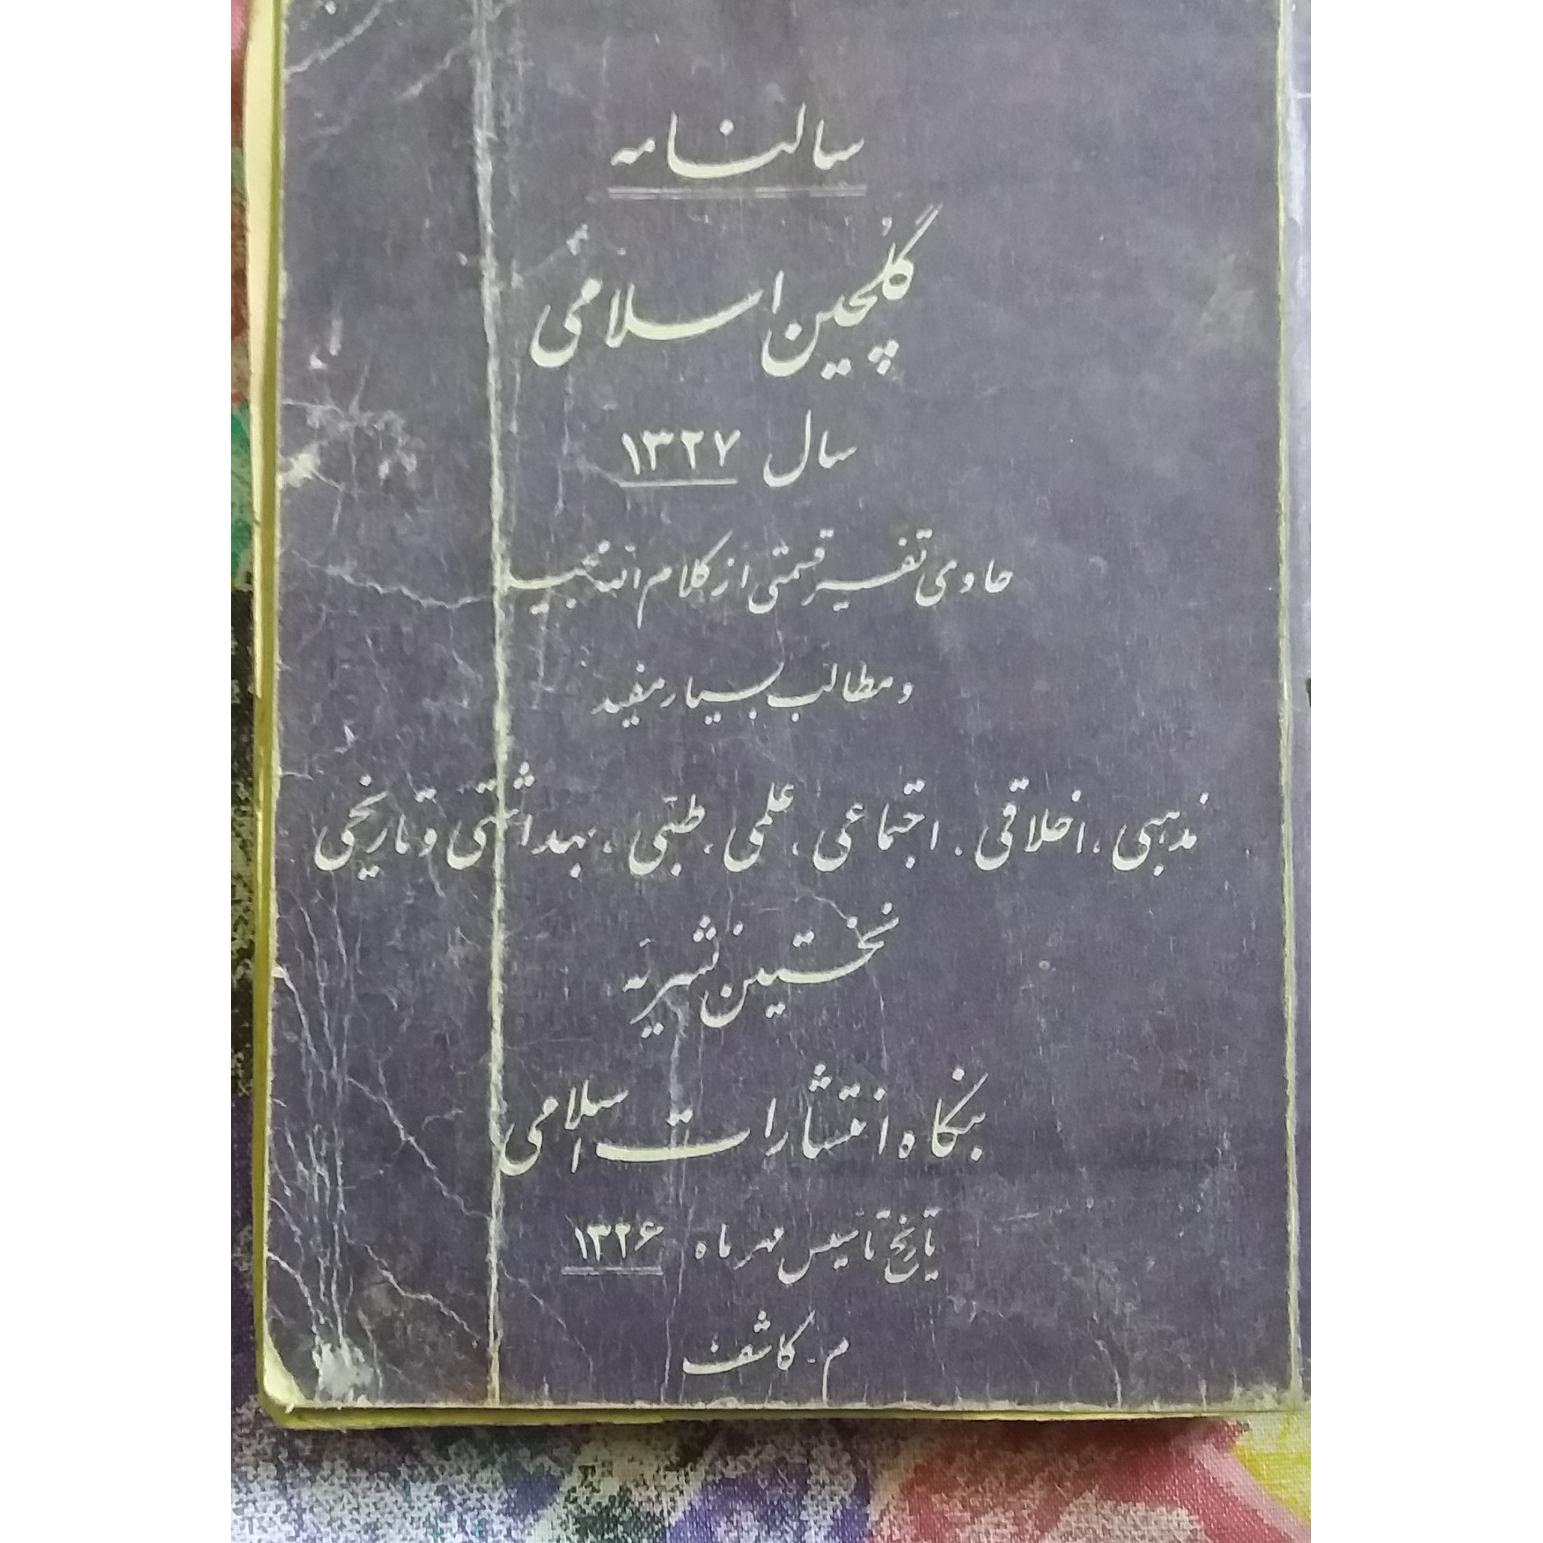 سالنامه
گلچین اسلامی
سال ۱۳۲۷
حاوی تفسیر قسمتی از کلام الله مجید
و مطالب بسیار مفید
مذهبی، اخلاقی، اجتماعی، علمی، طبّی، بهداشتی و تاریخی
نخستین نشریه
بنگاه انتشارات اسلامی
تاریخ تأسیس مهر ماه ۱۳۲۶
م. کاشف